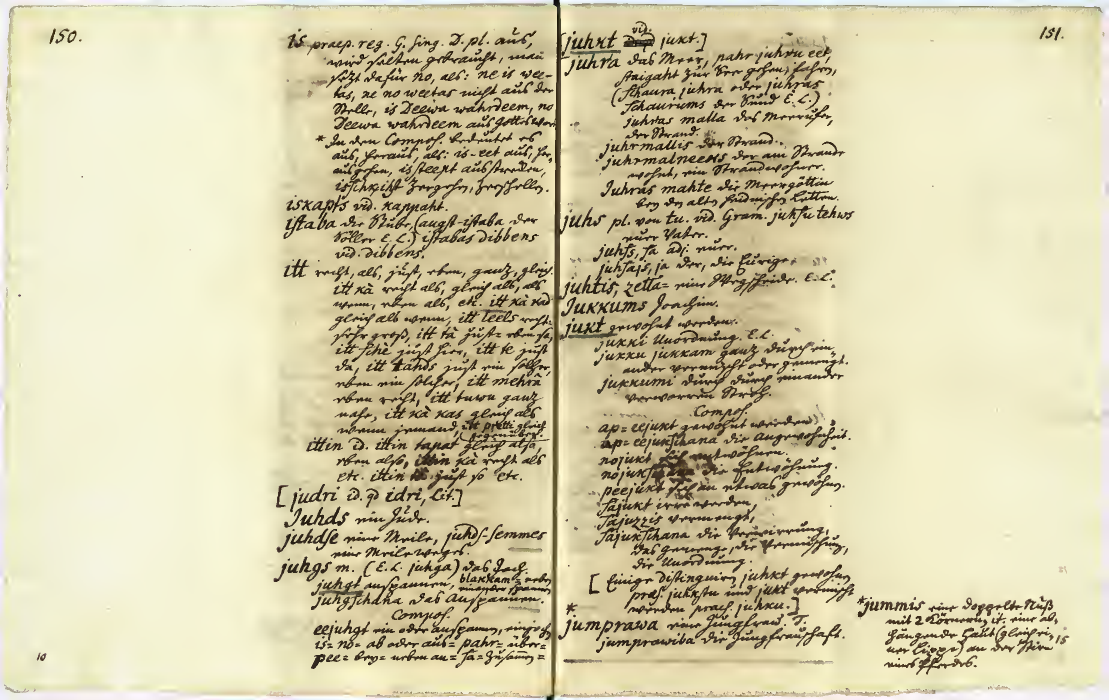 150.
is praep. reg. G. sing. D. pl. aus,
wird selten gebraucht, man
sezt dafür no, als: ne is wee-
tas, ne no weetas nicht aus der
Stelle, is Deewa wahrdeem, no
Deewa wahrdeem aus Gottes Wort
* In den Compos. bedeutet es
aus, heraus, als: is-eet aus, her-
ausgehen, issteept ausstrecken,
isschkihst zergehen, zerschellen.
iskapts vid. kappaht.
istaba die Stube, (augst-istaba der
Söller E.L.) istabas dibbens
vid. dibbens.
itt recht, als, just, eben, ganz, gleich.
itt kà recht als, gleich als, als
wenn, eben als, etc. itt kà kad
gleich als wenn, itt leels recht
sehr groß, itt tà just eben so,
itt schè just hier, itt te just
da, itt tahds just ein solcher,
eben ein solcher, itt mehrà
eben recht, itt tuwu ganz
nahe, itt kà kas gleich als
wenn jemand, itt pretti gleich
gegenüber.
ittin id. ittin tapat gleich also
eben also, ittin kà recht als
etc. ittin tà just so etc.
[judri id. qd idri, Lit.]
Juhds ein Jude.
juhdse eine Meile, juhds-semmes
eine Meile weges.
juhgs m. (E.L. juhga) das Joch.
juhgt anspannen, blakkam= neben
einander spannen
juhgschana das Anspannen.
Compos.
eejuhgt ein oder anspannen, einjochen
is= no= ab oder aus= pahr= über=
pee= bey= neben an= sa= zusamm=
10
151.
[juhkt vid. jukt.]
juhra das Meer, pahr juhru eet,
staigaht zur See gehen, fahren,
(schaura juhra oder juhras
schaurums der Sund E.L.)
juhras malla des Meerufer,
der Strand.
juhrmallis der Strand.
juhrmalneeks der am Strande
wohnt, ein Strandwohner.
Juhras mahte die Meergöttin
bey den alten heidnischen Letten.
juhs pl. von tu. vid. Gram. juhsu tehws
euer Vater.
juhss, sa adj. euer.
juhsajs, ja der, die Eurige
juhtis, zella= eine Wegscheide. E.L.
Jukkums Joachim.
jukt gewohnt werden.
jukki Unordnung. E.L.
jukku jukkam ganz durch ein-
ander vermischt oder gemengt.
jukkumi durch durch einander
verworren Stroh.
Compos.
ap= eejukt gewohnt werden
ap= eejukschana die Angewohnheit.
nojukt sich entwöhnen.
nojukschana die Entwöhnung.
peejukt sich an etwas gewöhnen.
sajukt irre werden,
sajuzzis vermengt,
sajukschana die Verwirrung,
das gemenge, die Vermischung,
die Unordnung.
[Einige distinguiren juhkt gewohnen
praes. jukkstu und jukt vermischt
werden praes. juhku.]
*
jumprawa eine Jungfrau. T.
jumprawiba die Jungfrauschaft.
*jummis eine doppelte Nuß
mit 2 Körnern, it. eine ab-
hängende Haut (gleich ei-
ner Lippe) an der Stirn
eines Pferdes.
15